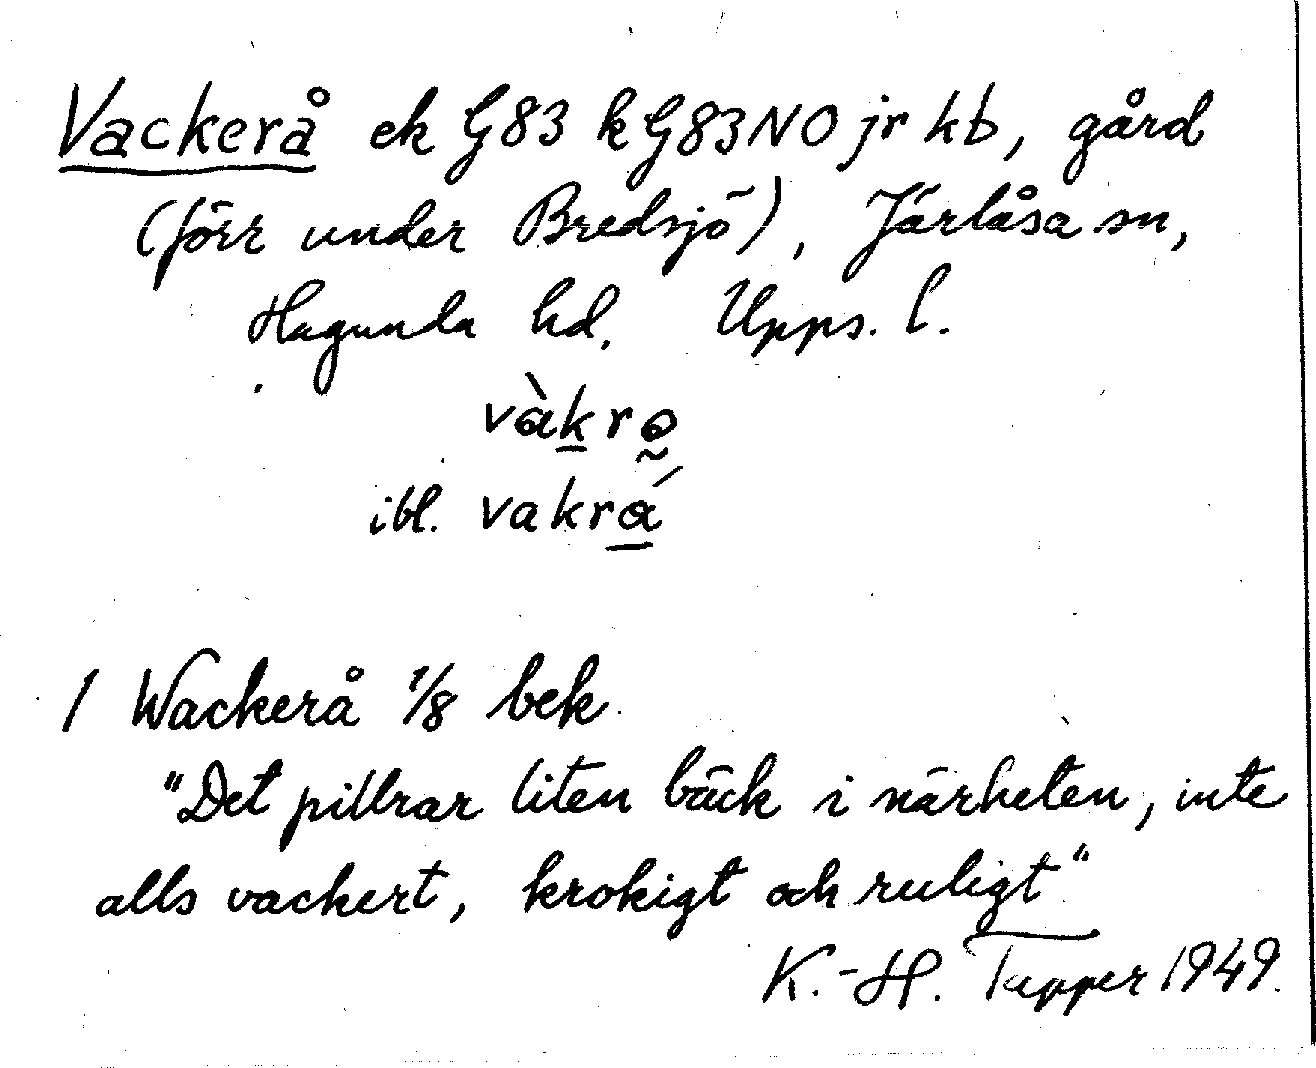 Vackerå ek G83 k G83NO jr kb, gård
(förr under Bredsjö), Järlåsa sn,
Hagunda hd. Upps. l.
vàkrə̰
ibl. vakrá
1 Wackerå 1/8 bek
"Det pillrar liten bäck i närheten, inte
alls vackert, krokigt och ruligt"
K.-H. Tapper 1949.